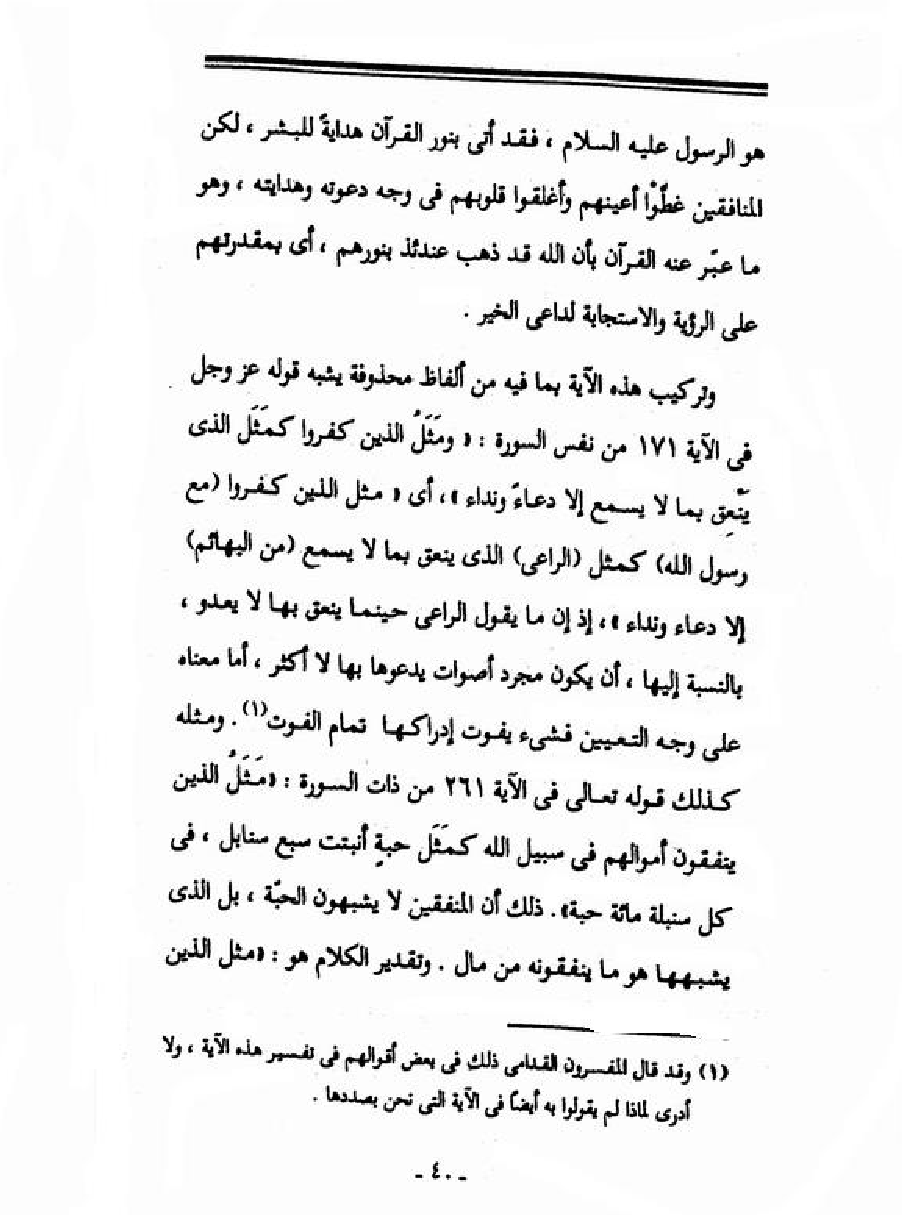 هو الرسول عليه السلام ، فقد أتى بنور القرآن هدايةً للبشر ، لكن
المنافقين غطَّوْا أعينهم وأغلقوا قلوبهم فى وجه دعوته وهدايته ، وهو
ما عبّر عنه القرآن بأن الله قد ذهب عندئذ بنورهم ، أى بمقدرتهم
على الرؤية والاستجابة لداعى الخير .
وتركيب هذه الآية بما فيه من ألفاظ محذوفة يشبه قوله عز وجل
فى الآية ١٧١ من نفس السورة : « ومَثَلُ الذين كفروا كمَثَل الذى
يَنْعِق بما لا يسمع إلا دعاءً ونداء » ، أى « مثل الذين كفروا (مع
رسول الله) كمثل (الراعى) الذى ينعق بما لا يسمع (من البهائم)
إلا دعاء ونداء » ، إذ إن ما يقول الراعى حينما ينعق بها لا يعدو ،
بالنسبة إليها ، أن يكون مجرد أصوات يدعوها بها لا أكثر ، أما معناه
على وجه التعيين فشىء يفوت إدراكها تمام الفوت(١) . ومثله
كذلك قوله تعالى فى الآية ٢٦١ من ذات السورة : «مَثَلُ الذين
ينفقون أموالهم فى سبيل الله كمَثَل حبةٍ أنبتت سبع سنابل ، فى
كل سنبلة مائة حبة» . ذلك أن المنفقين لا يشبهون الحبّة ، بل الذى
يشبهها هو ما ينفقونه من مال . وتقدير الكلام هو : «مثل الذين
(١) وقد قال المفسرون القدامى ذلك فى بعض أقوالهم فى تفسير هذه الآية ، ولا
أدرى لماذا لم يقولوا به أيضًا فى الآية التى نحن بصددها .
- ٤٠ -